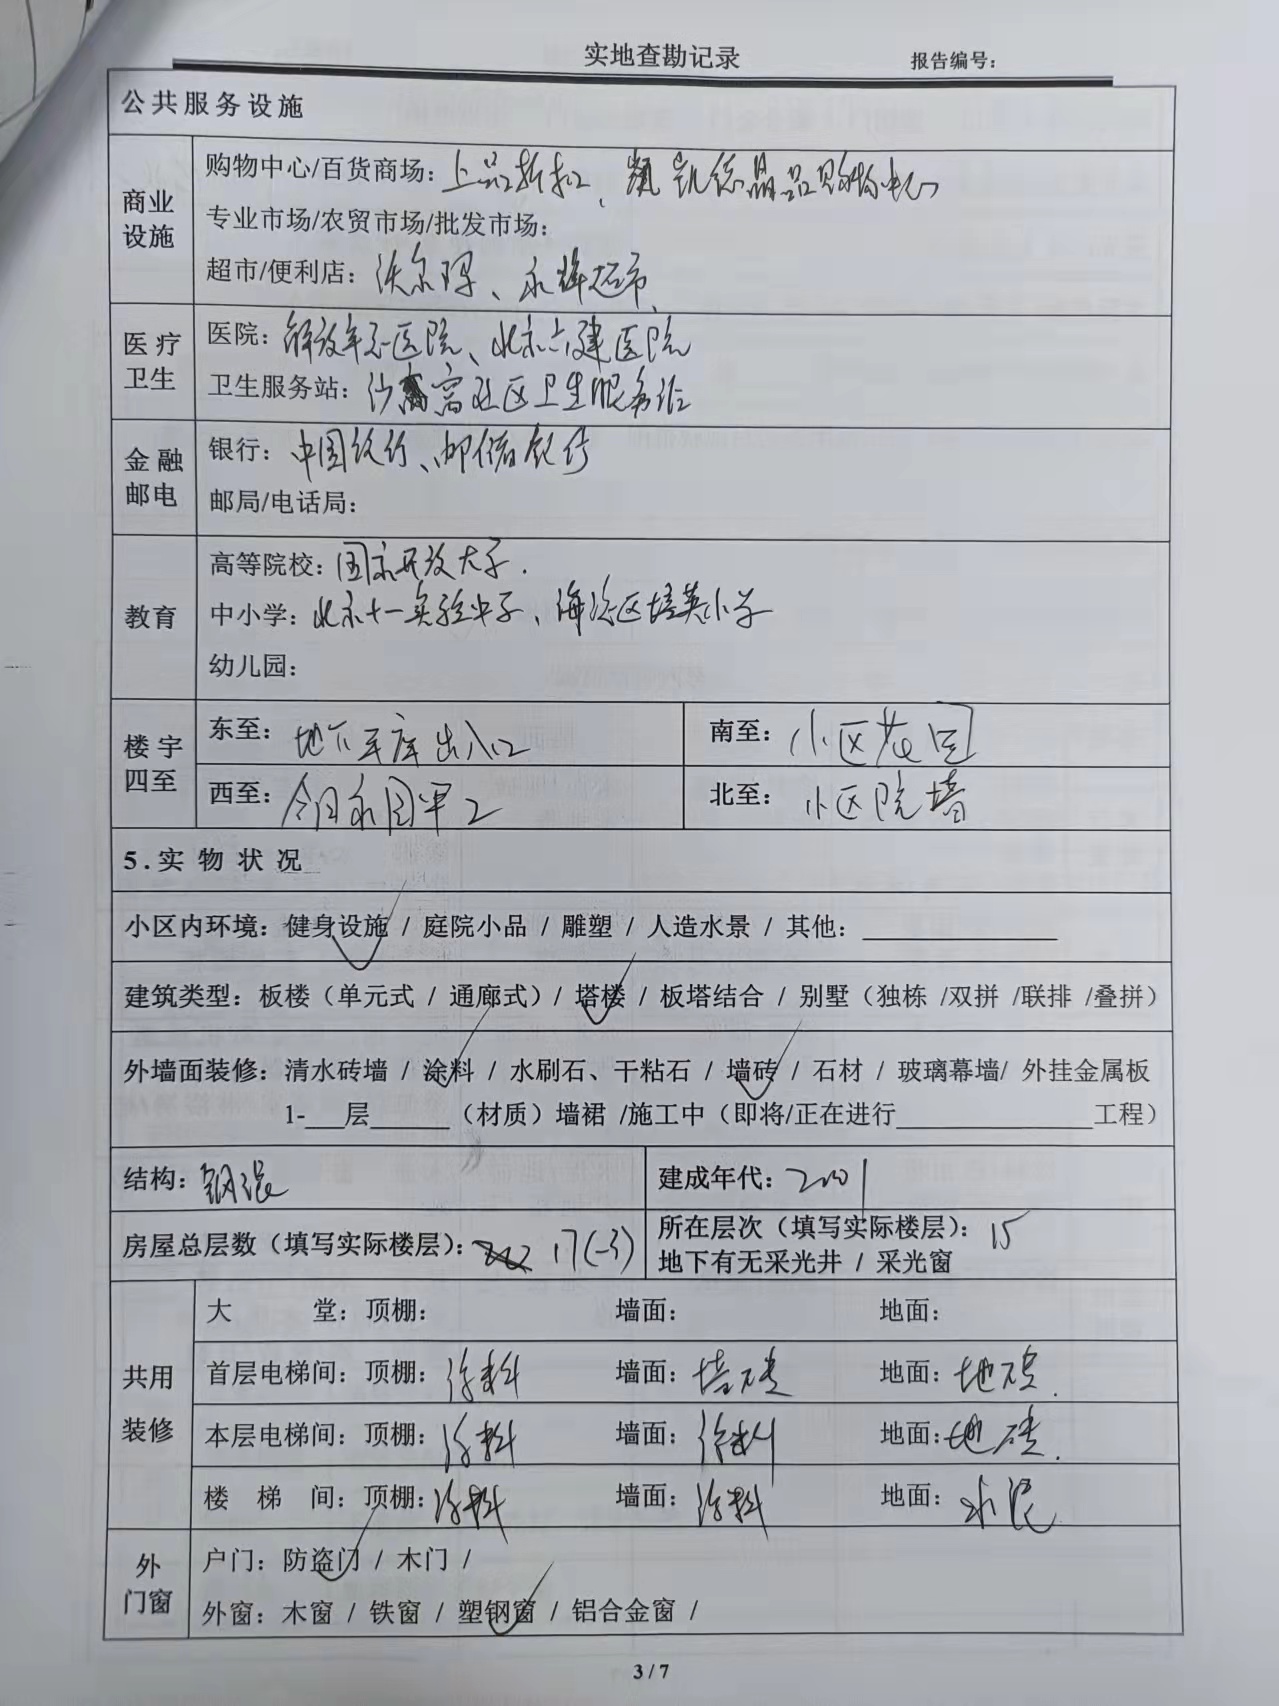 实地查勘记录 报告编号：
公共服务设施
商业设施
购物中心/百货商场：上品折扣、凯德晶品购物中心
专业市场/农贸市场/批发市场：
超市/便利店：沃尔玛、永辉超市
医疗卫生
医院：解放军总医院、北京六建医院
卫生服务站：沙窝社区卫生服务站
金融邮电
银行：中国银行、邮储银行
邮局/电话局：
教育
高等院校：国家开放大学.
中小学：北京十一实验中学、海淀区培英小学
幼儿园：
楼宇四至
东至：地下车库出入口 南至：小区花园
西至：今日家园甲2 北至：小区院墙
5.实物状况
小区内环境：健身设施 / 庭院小品 / 雕塑 / 人造水景 / 其他：
建筑类型：板楼（单元式 / 通廊式）/ 塔楼 / 板塔结合 / 别墅（独栋 /双拼 /联排 /叠拼）
外墙面装修：清水砖墙 / 涂料 / 水刷石、干粘石 / 墙砖 / 石材 / 玻璃幕墙/ 外挂金属板
1-___层______（材质）墙裙 /施工中（即将/正在进行______________工程）
结构：钢混 建成年代：2001
房屋总层数（填写实际楼层）：17(-3) 所在层次（填写实际楼层）：15
地下有无采光井 / 采光窗
共用装修
大堂：顶棚： 墙面： 地面：
首层电梯间：顶棚：涂料 墙面：墙砖 地面：地砖.
本层电梯间：顶棚：涂料 墙面：涂料 地面：地砖.
楼梯间：顶棚：涂料 墙面：涂料 地面：水泥
外门窗
户门：防盗门 / 木门 /
外窗：木窗 / 铁窗 / 塑钢窗 / 铝合金窗 /
3 / 7